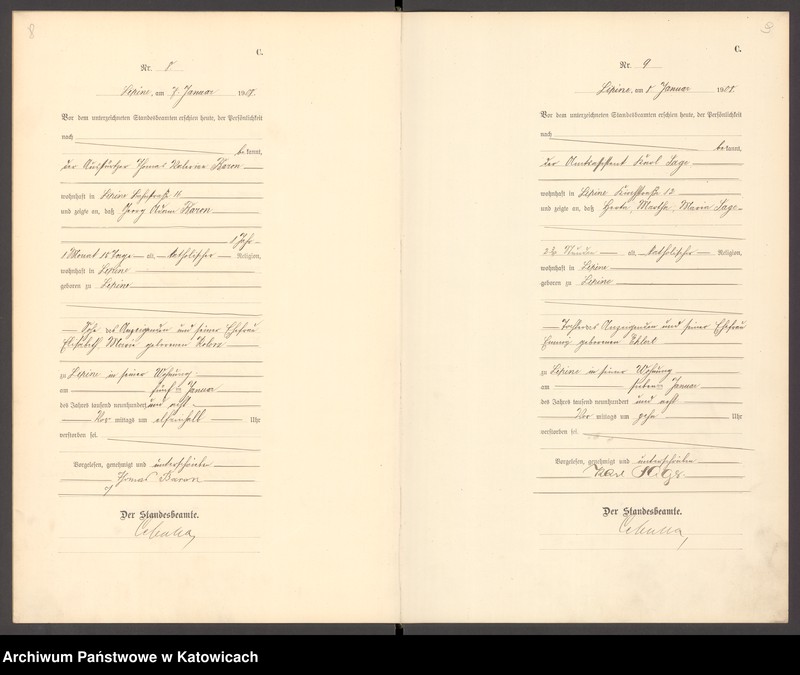 8
C.
Nr. 8
Lipine, am 7. Januar 1908.
Vor dem unterzeichneten Standesbeamten erschien heute, der Persönlichkeit
nach
bekannt,
der Thomas Baron
wohnhaft in Lipine 11
und zeigte an, daß Georg Adam Baron
1 Jahr
1 Monat 18 Tage alt, katholischer Religion,
wohnhaft in Lipine
geboren zu Lipine
Sohn des Anzeigenden und seiner Ehefrau
Elisabeth Marie geborenen
zu Lipine in seiner Wohnung
am fünften Januar
des Jahres tausend neunhundert und acht
Vor mittags um elfeinhalb Uhr
verstorben sei.
Vorgelesen, genehmigt und unterschrieben
Thomas Baron
Der Standesbeamte.
Cebulla
9
C.
Nr. 9
Lipine, am 8. Januar 1908.
Vor dem unterzeichneten Standesbeamten erschien heute, der Persönlichkeit
nach
bekannt,
der Amtsassistent Karl
wohnhaft in Lipine 12
und zeigte an, daß Herta Martha Maria
26 Stunden alt, katholischer Religion,
wohnhaft in Lipine
geboren zu Lipine
Tochter des Anzeigenden und seiner Ehefrau
geborenen Ehlert
zu Lipine in seiner Wohnung
am siebten Januar
des Jahres tausend neunhundert und acht
Vor mittags um zehn Uhr
verstorben sei.
Vorgelesen, genehmigt und unterschrieben
Karl
Der Standesbeamte.
Cebulla
Archiwum Państwowe w Katowicach